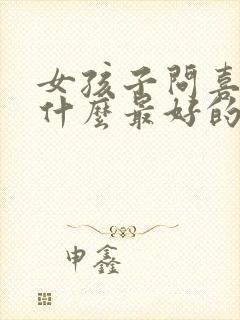 女孩子問喜
什麼最好的
申鑫